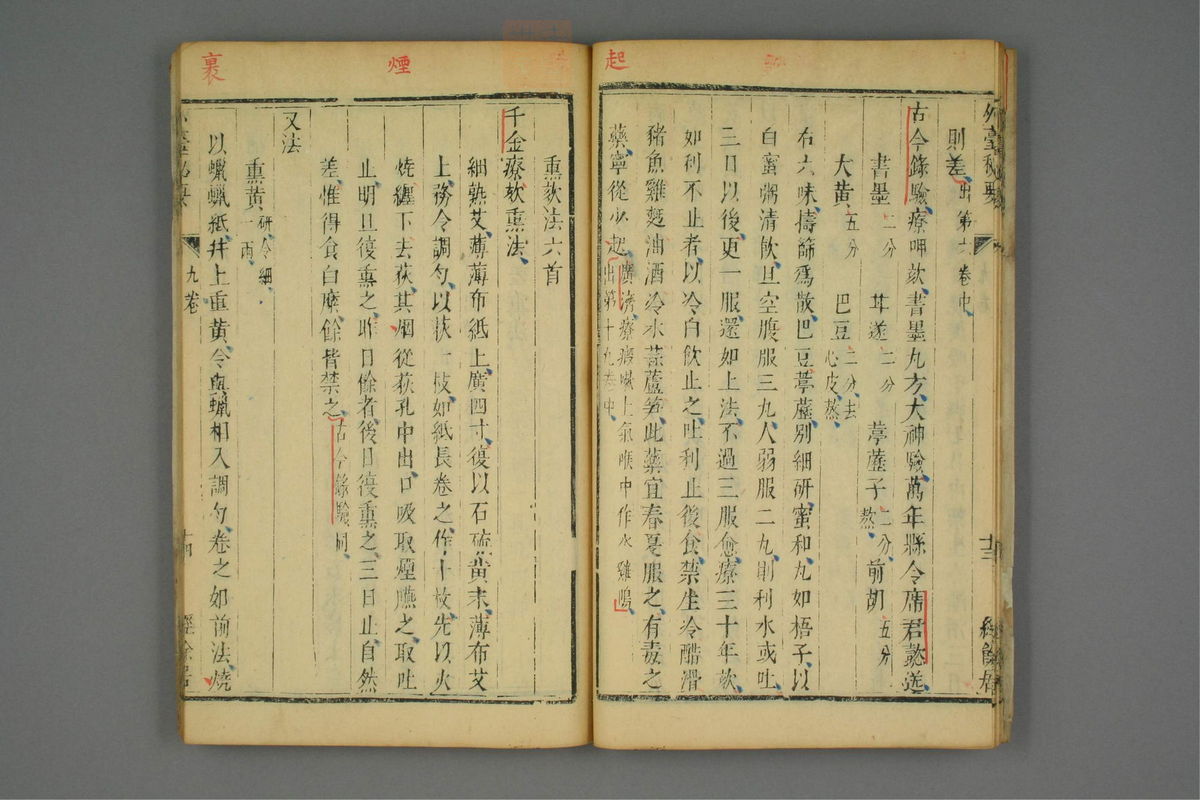 起
外臺秘要
十三
經餘居
則差出第六卷中
古今錄驗療呷欬書墨丸方大神驗萬年縣令席君懿送
書墨二分 甘遂二分 葶藶子二分熬 前胡五分
大黃五分 巴豆二分去心皮熬
右六味擣篩爲散巴豆葶藶別細研蜜和丸如梧子以
白蜜粥清飲旦空腹服三丸人弱服二丸則利水或吐
三日以後更一服還如上法不過三服愈療三十年欬
如利不止者以冷白飲止之吐利止後食禁生冷酷滑
豬魚雞麪油酒冷水蒜蘆笋此藥宜春夏服之有毒之
藥寧從少起廣濟療瘕嗽上氣喉中作水雞鳴出第十九卷中
裹
煙
熏欬法六首
千金療欬熏法
細熟艾薄薄布紙上廣四寸復以石硫黃末薄布艾
上務令調勻以荻一枝如紙長卷之作十枚先以火
燒纏下去荻其烟從荻孔中出口吸取煙嚥之取吐
止明旦復熏之昨日餘者後日復熏之三日止自然
差惟得食白糜餘皆禁之古今錄驗同
又法
熏黃研令細一兩
以蠟蠟紙幷上熏黃令與蠟相入調勻卷之如前法燒
九卷
十四
經餘居